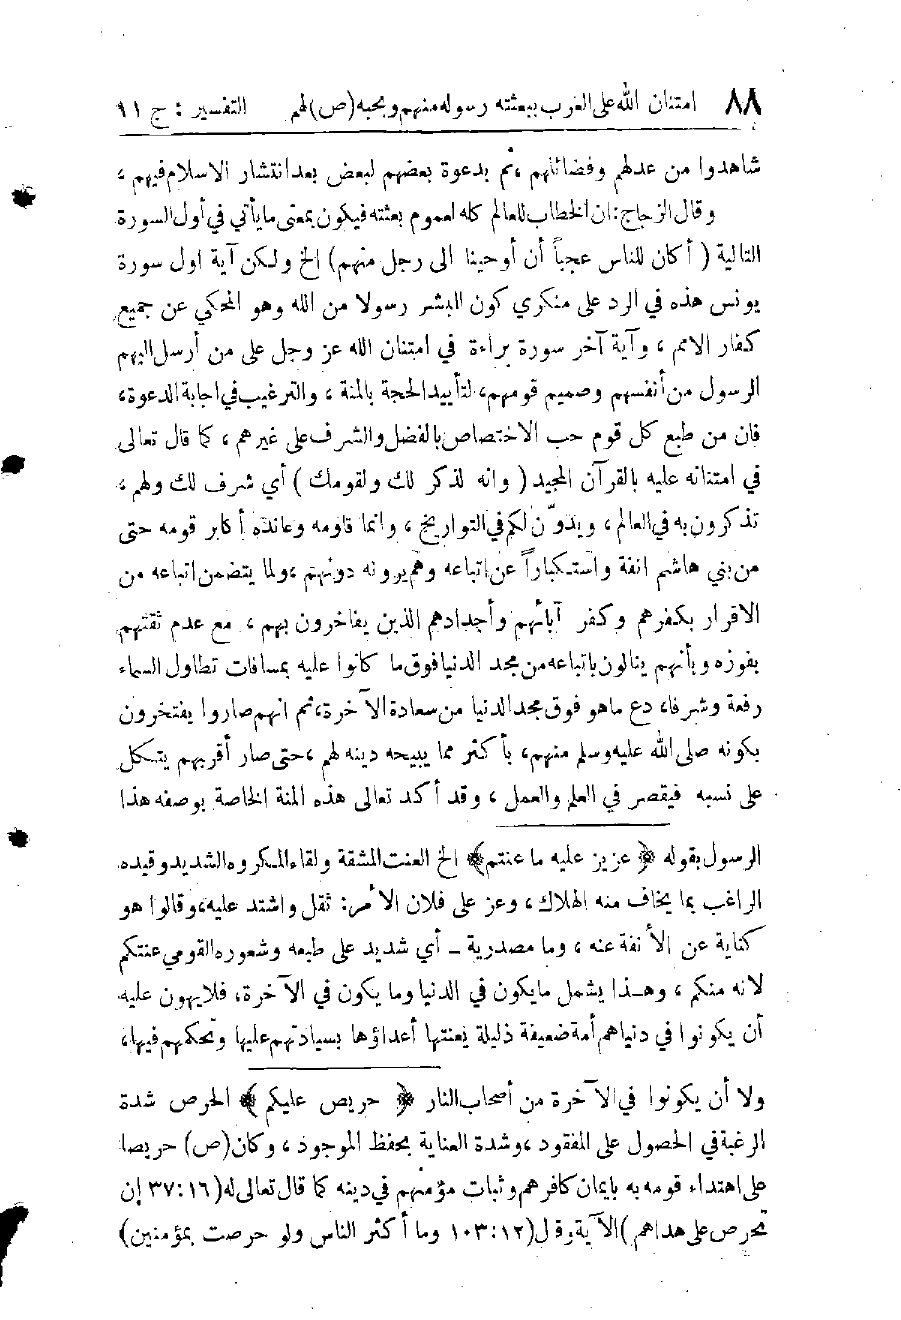 ٨٨ امتنان الله على العرب ببعثته رسوله منهم وبحبه (ص) لهم التفسير : ج ١١
شاهدوا من عدلهم وفضائلهم ، ثم بدعوة بعضهم لبعض بعد انتشار الاسلام فيهم ،
وقال الزجاج : ان الخطاب للعالم كله لعموم بعثته فيكون بمعنى ما يأتي في أول السورة
التالية ( أكان للناس عجباً أن أوحينا الى رجل منهم ) الخ ولكن آية اول سورة
يونس هذه في الرد على منكري كون البشر رسولا من الله وهو المحكي عن جميع
كفار الامم ، وآية آخر سورة براءة في امتنان الله عز وجل على من أرسل اليهم
الرسول من أنفسهم وصميم قومهم، لتأييد الحجة بالمنة ، والترغيب في اجابة الدعوة،
فان من طبع كل قوم حب الاختصاص بالفضل والشرف على غيرهم ، كما قال تعالى
في امتنانه عليه بالقرآن المجيد ( وانه لذكر لك ولقومك ) أي شرف لك ولهم ،
تذكرون به في العالم ، ويدوّن لكم في التواريخ ، وانما قاومه وعانده أكابر قومه حتى
من بني هاشم انفة واستكباراً عن اتباعه وهم يرونه دونهم ، ولما يتضمن اتباعه من
الاقرار بكفرهم وكفر آبائهم وأجدادهم الذين يفاخرون بهم ، مع عدم ثقتهم
بفوزه وبأنهم ينالون باتباعه من مجد الدنيا فوق ما كانوا عليه بمسافات تطاول السماء
رفعة وشرفا، دع ماهو فوق مجد الدنيا من سعادة الآخرة، ثم انهم صاروا يفتخرون
بكونه صلى الله عليه وسلم منهم، بأكثر مما يبيحه دينه لهم ، حتى صار أقربهم يتكل
على نسبه فيقصر في العلم والعمل ، وقد أكد تعالى هذه المنة الخاصة بوصفه هذا
الرسول بقوله ﴿ عزيز عليه ما عنتم ﴾ الخ العنت المشقة ولقاء المكروه الشديد وقيده
الراغب بما يخاف منه الهلاك ، وعز على فلان الأمر: ثقل واشتد عليه، وقالوا هو
كناية عن الأنفة عنه ، وما مصدرية ـ أي شديد على طبعه وشعوره القومي عنتكم
لانه منكم ، وهـذا يشمل مايكون في الدنيا وما يكون في الآخرة، فلايهون عليه
أن يكونوا في دنياهم أمة ضعيفة ذليلة يعنتها أعداؤها بسيادتهم عليها وتحكمهم فيها،
ولا أن يكونوا في الآخرة من أصحاب النار ﴿ حريص عليكم ﴾ الحرص شدة
الرغبة في الحصول على المفقود ، وشدة العناية بحفظ الموجود ، وكان (ص) حريصا
على اهتداء قومه به بايمان كافرهم وثبات مؤمنهم في دينه كما قال تعالى له (٣٧:١٦ إن
تحرص على هداهم ) الآية وقال (١٠٣:١٢ وما أكثر الناس ولو حرصت بمؤمنين)